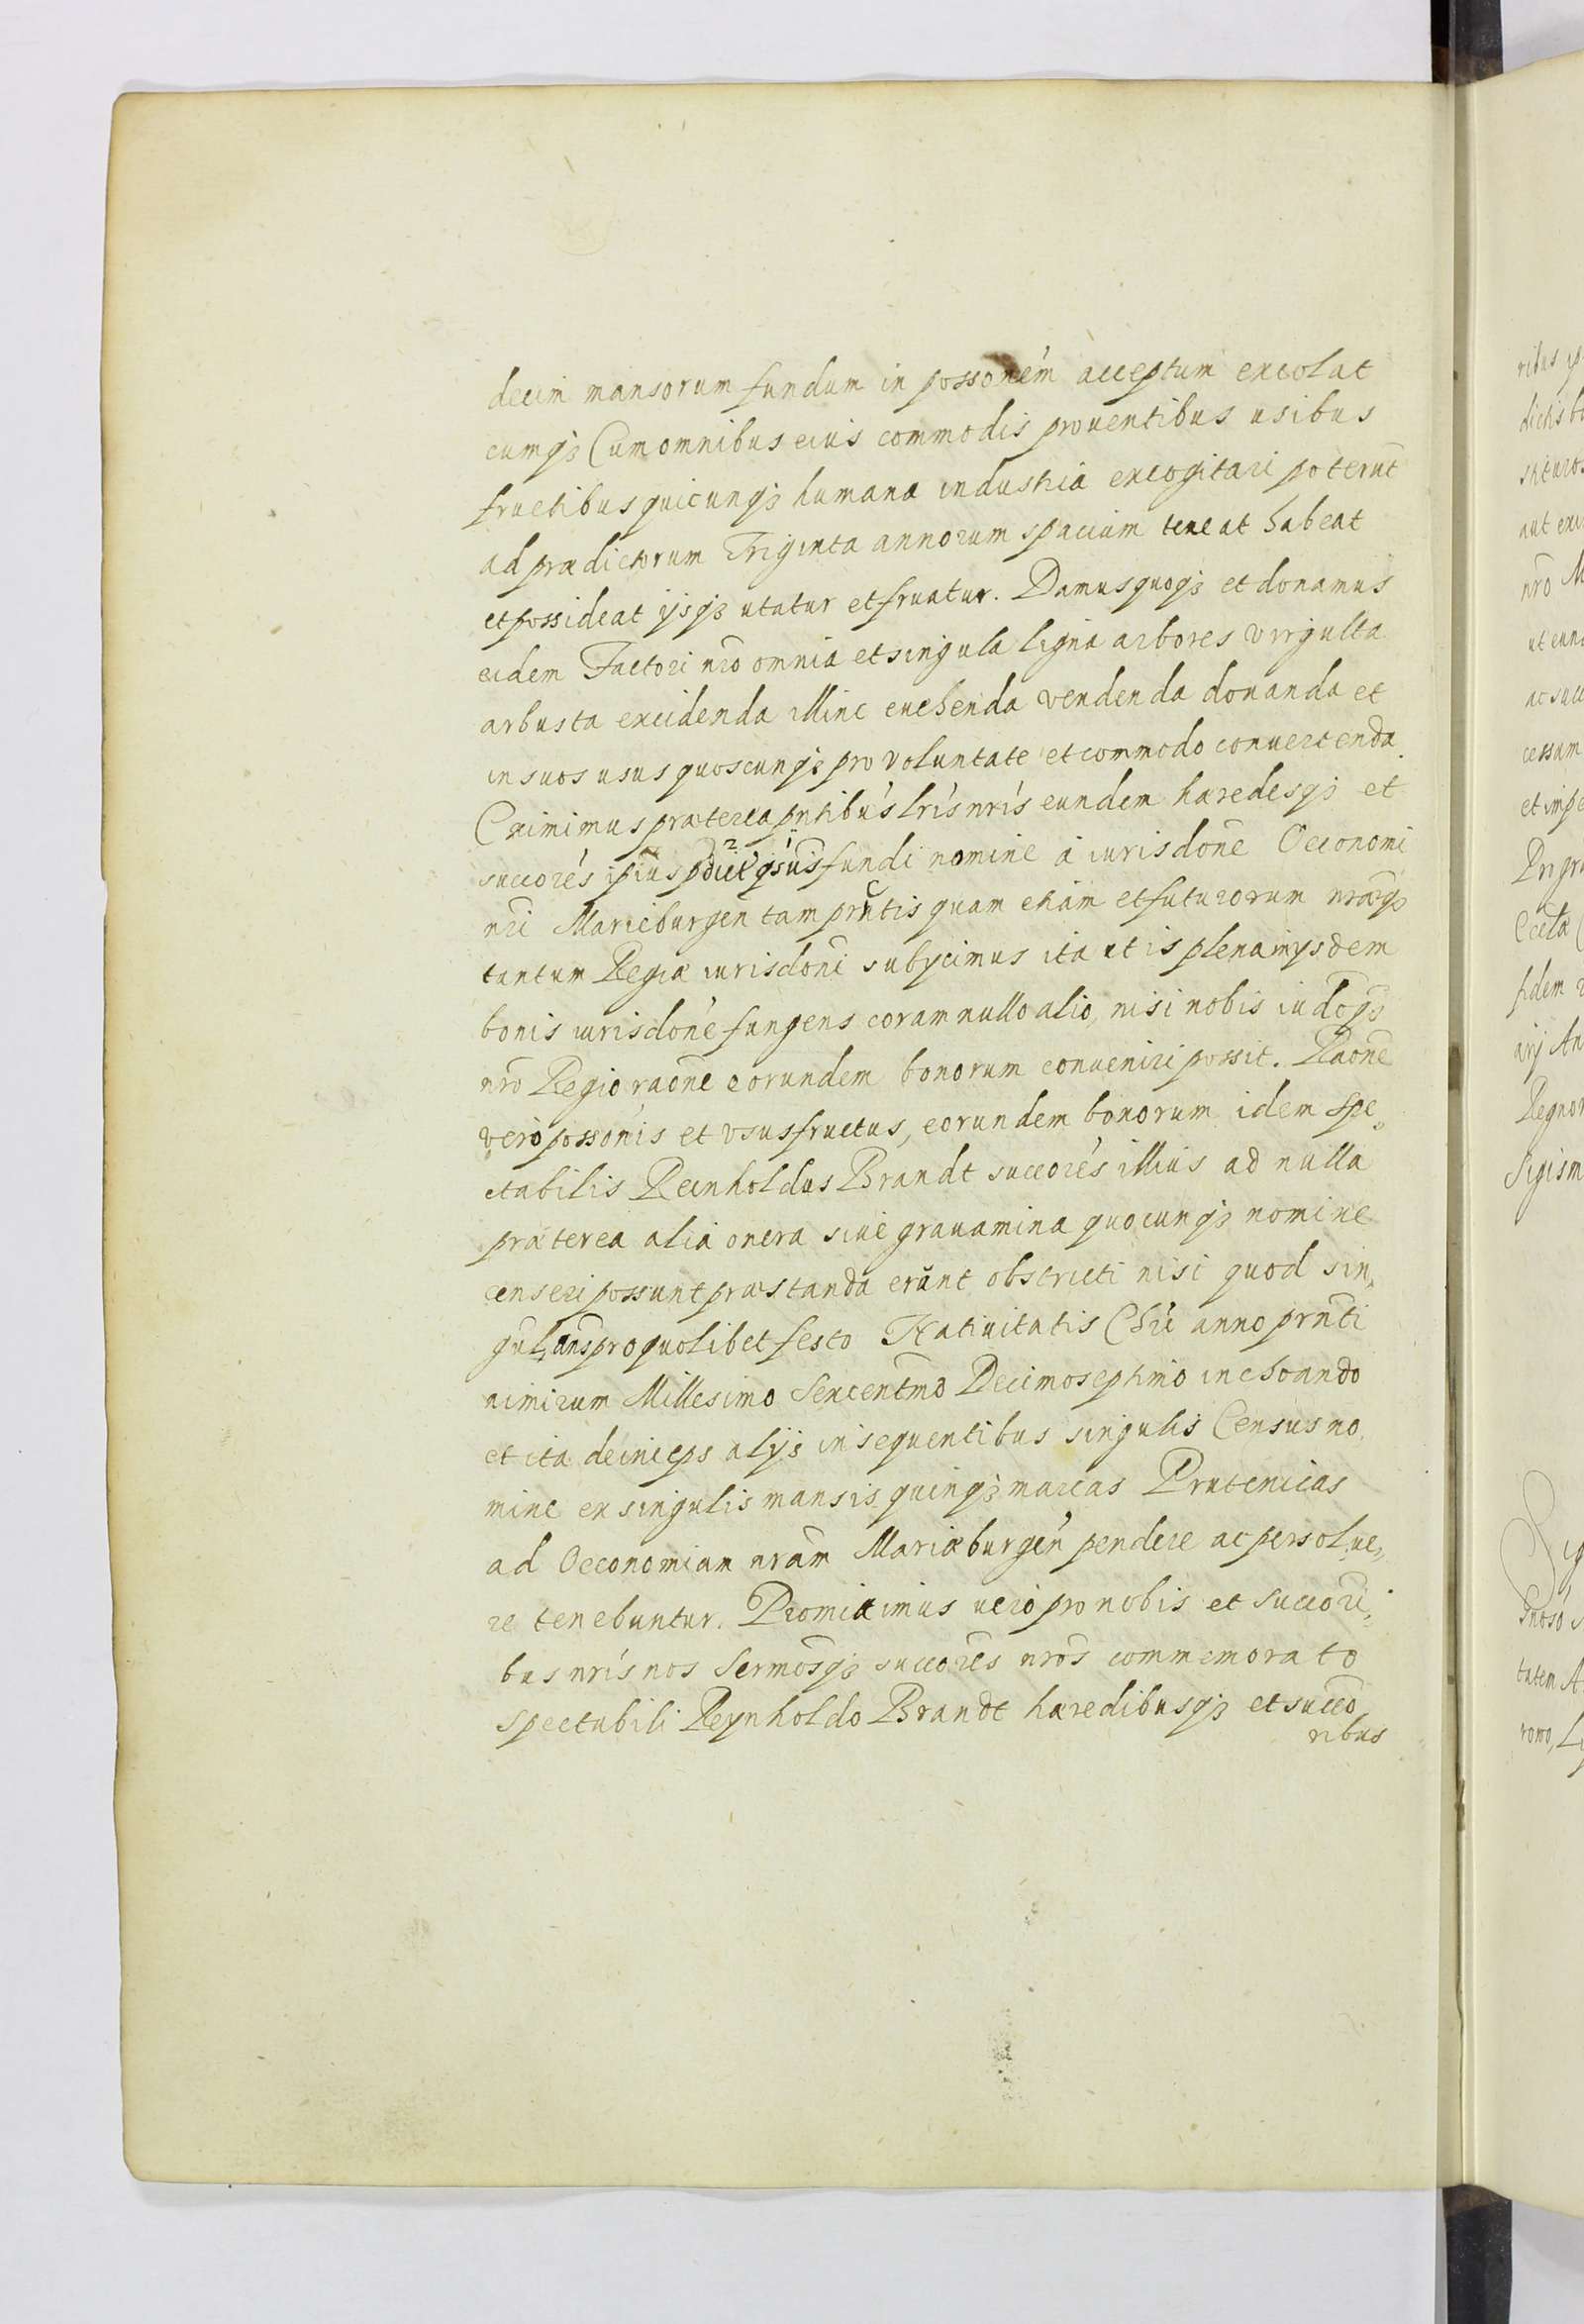 decim mansorum fundum in possoném acceptum excolat
eumq3 Cum omnibus eius commodis prouentibus usibus
fructibus quicunq3 humana industria excogitari poterut
ad prædictorum Triginta annorum spacium teneat habeat
et possideat ijsq3 utatur et fruatur. Damus quoq3 et donamus
eidem Factori nro omnia et singula ligna arbores virgulta
arbusta excidenda illinc euehenda vendenda donanda et
in suos usus quoscunq3 pro voluntate et commodo conuertenda.
Eximimus præterea pntibus lris nris eundem hæredesq3 et
succorés ipius fundi nomine a iurisdone Oeconomi
nri Marieburgen tam prntis quam etiam et futurorum nræq3
tantum Regiæ iurisdoni subijcimus ita ut is plena in ijsdem
bonis iurisdone fungens coram nullo alio, nisi nobis iudoq3
nro Regio raone eorundem bonorum conueniri possit. Raone
vero possonis et vsusfructus, eorundem bonorum idem spe„
ctabilis Reinholdus Brandt succores illius ad nulla
præterea alia onera siue grauamina quocunq3 nomine
censeri possunt præstanda erunt obstricti nisi quod sin„
gul annis pro quolibet festo Natiuitatis Chri anno prnti
nimirum Millesimo Sexcentmo Decimoseptimo inchoando
et ita deinceps alijs insequentibus singulis Census no„
mine ex singulis mansis quinq3 marcas Prutenicas
ad Oeconomiam nram Mariæburgen pendere ac persolue„
re tenebuntur. Promittimus uero pro nobis et succori„
bus nris nos Sermosq3 succores nros commemorato
spectabili Reynholdo Brandt hæredibusq3 et succo
ribus